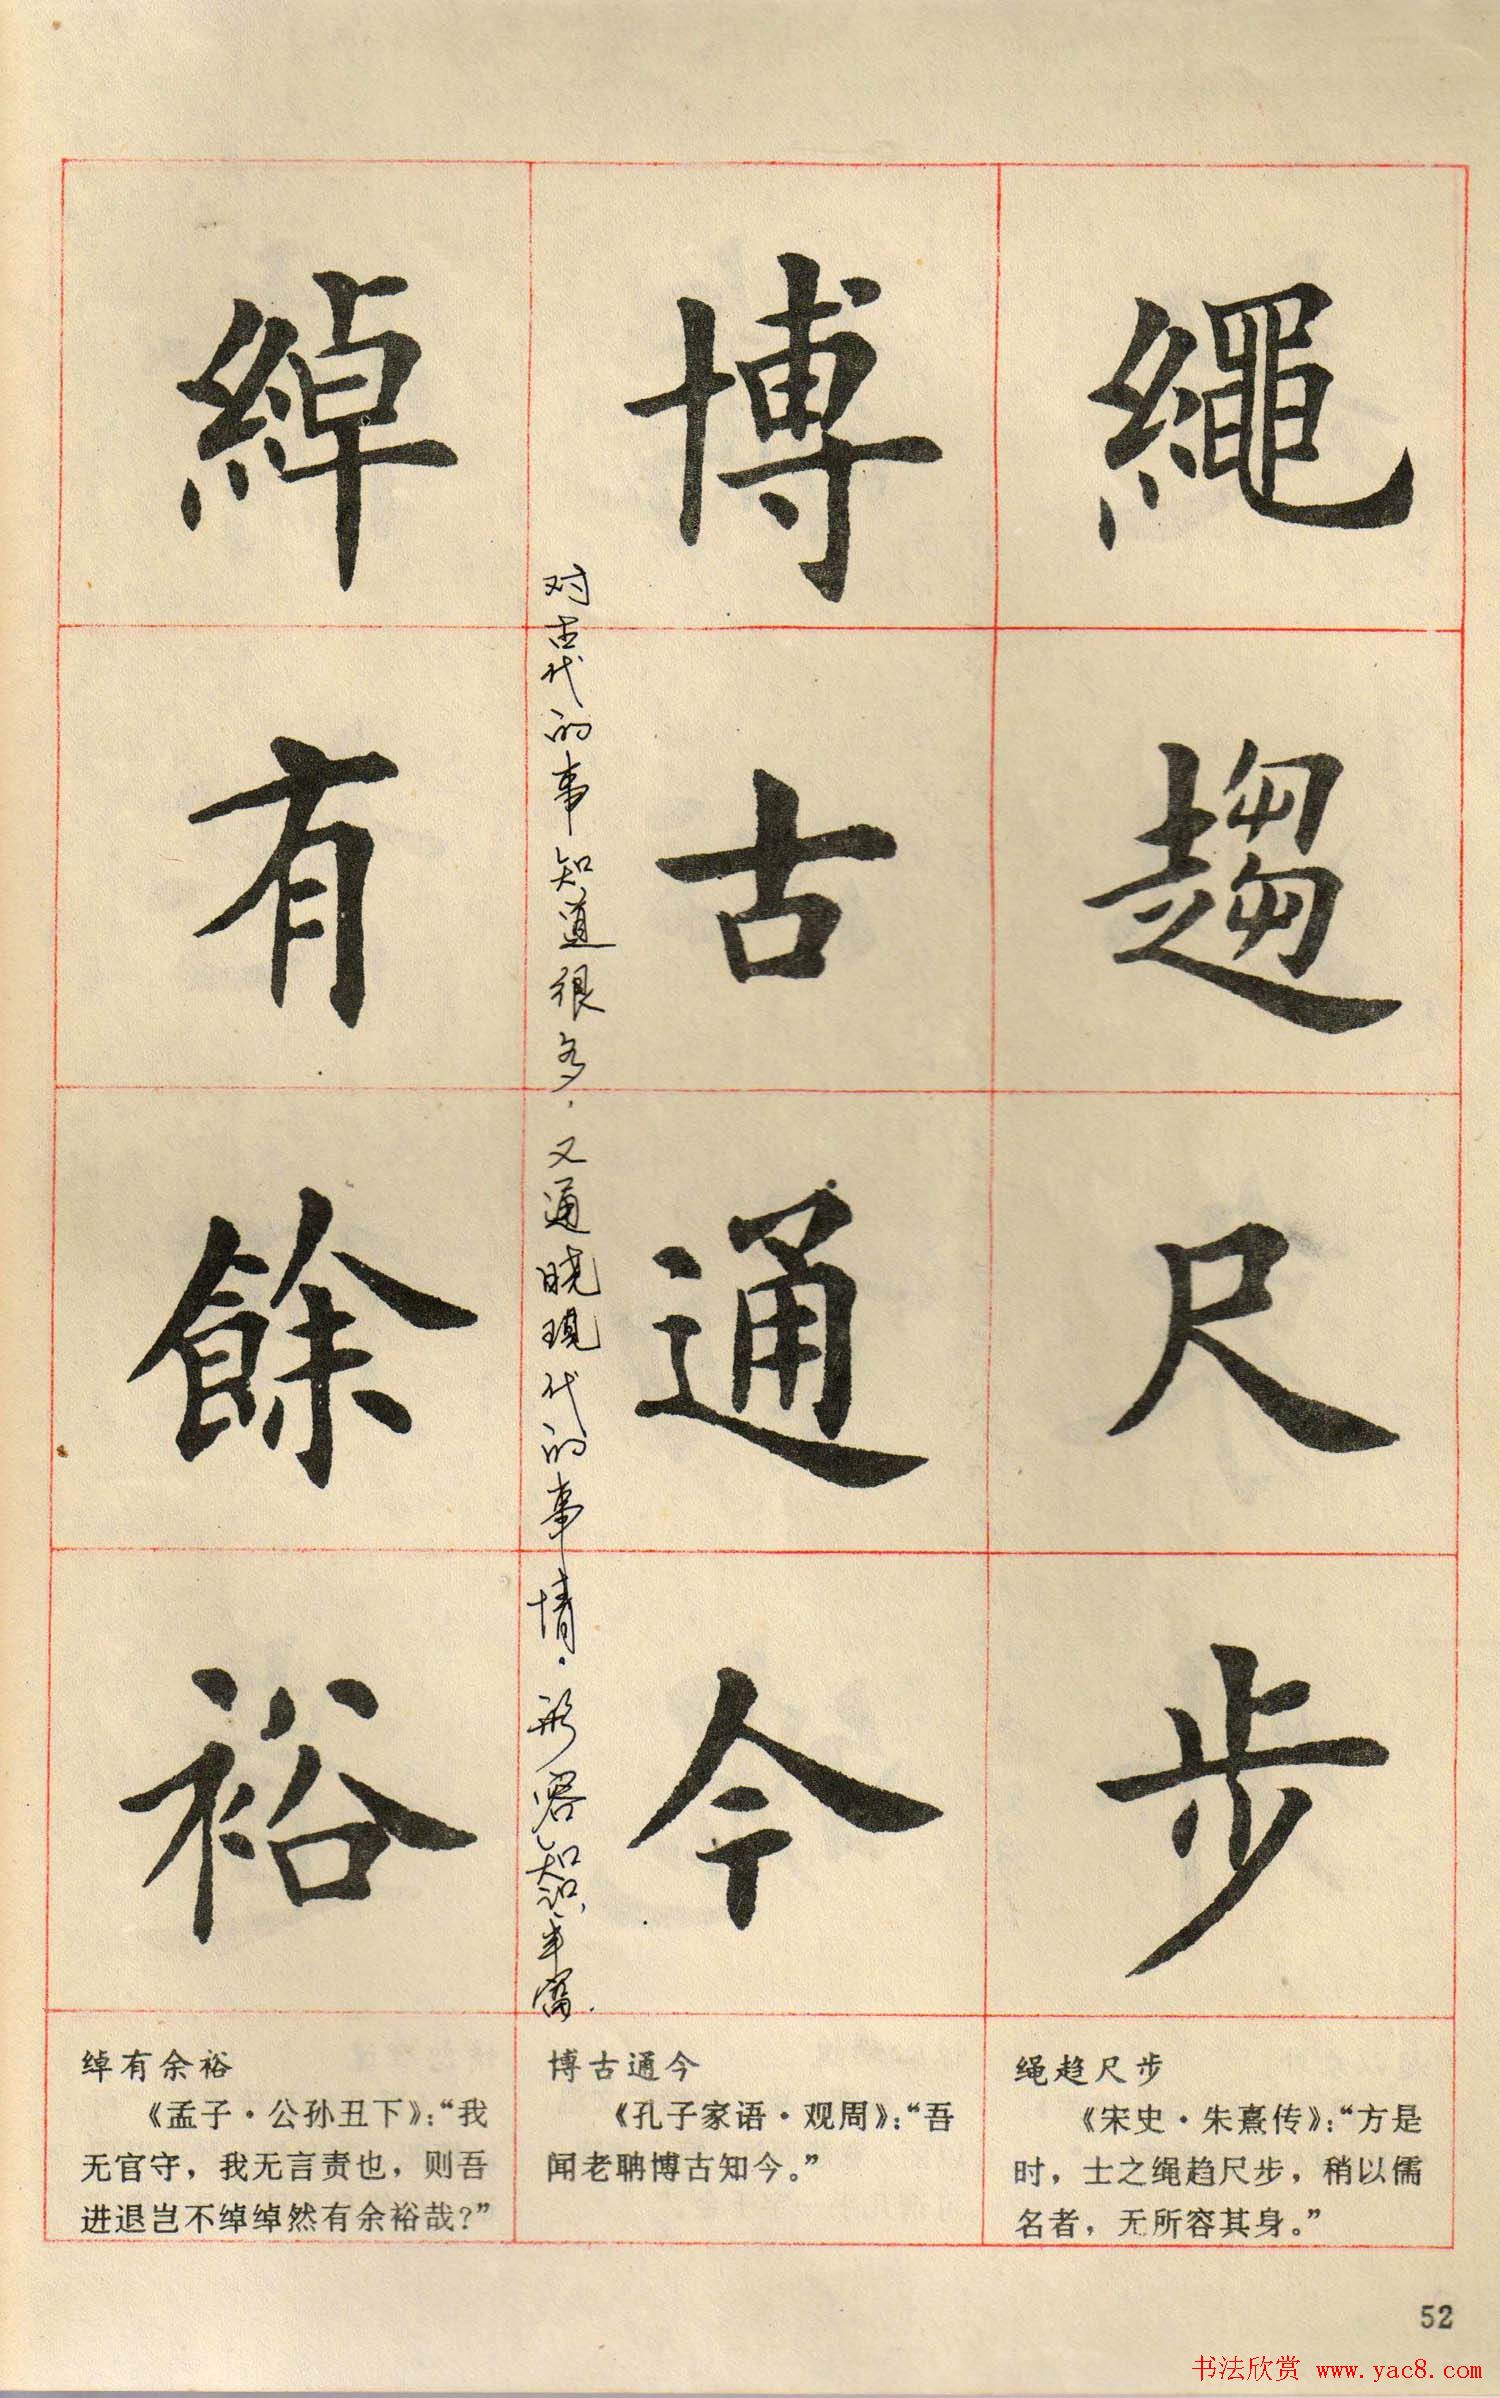 繩趨尺步
博古通今
对古代的事知道很多，又通晓现代的事情。形容知识丰富.
綽有餘裕
绳趋尺步
《宋史·朱熹传》：“方是
时，士之绳趋尺步，稍以儒
名者，无所容其身。”
博古通今
《孔子家语·观周》：“吾
闻老聃博古知今。”
绰有余裕
《孟子·公孙丑下》：“我
无官守，我无言责也，则吾
进退岂不绰绰然有余裕哉？”
52
书法欣赏 www.yac8.com